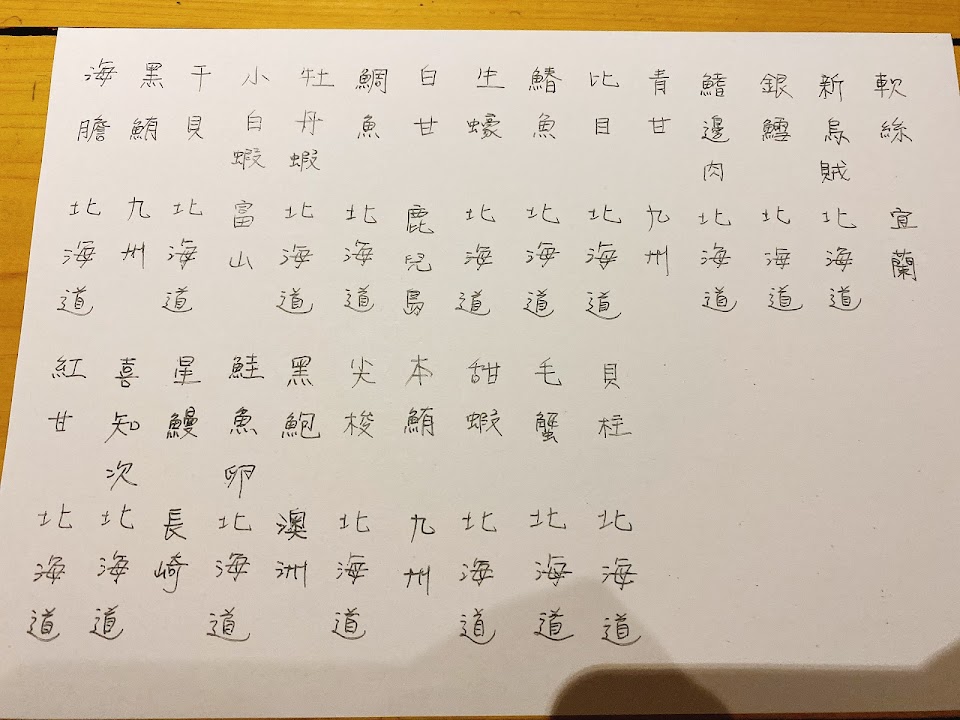 海膽
黑鮪
干貝
小白蝦
牡丹蝦
鯛魚
白甘
生蠔
鰆魚
比目
青甘
鰭邊肉
銀鱈
新烏賊
軟絲
北海道
九州
北海道
富山
北海道
北海道
鹿兒島
北海道
北海道
北海道
九州
北海道
北海道
北海道
宜蘭
紅甘
喜知次
星鰻
鮭魚卵
黑鮑
尖梭
本鮪
甜蝦
毛蟹
貝柱
北海道
北海道
長崎
北海道
澳洲
北海道
九州
北海道
北海道
北海道